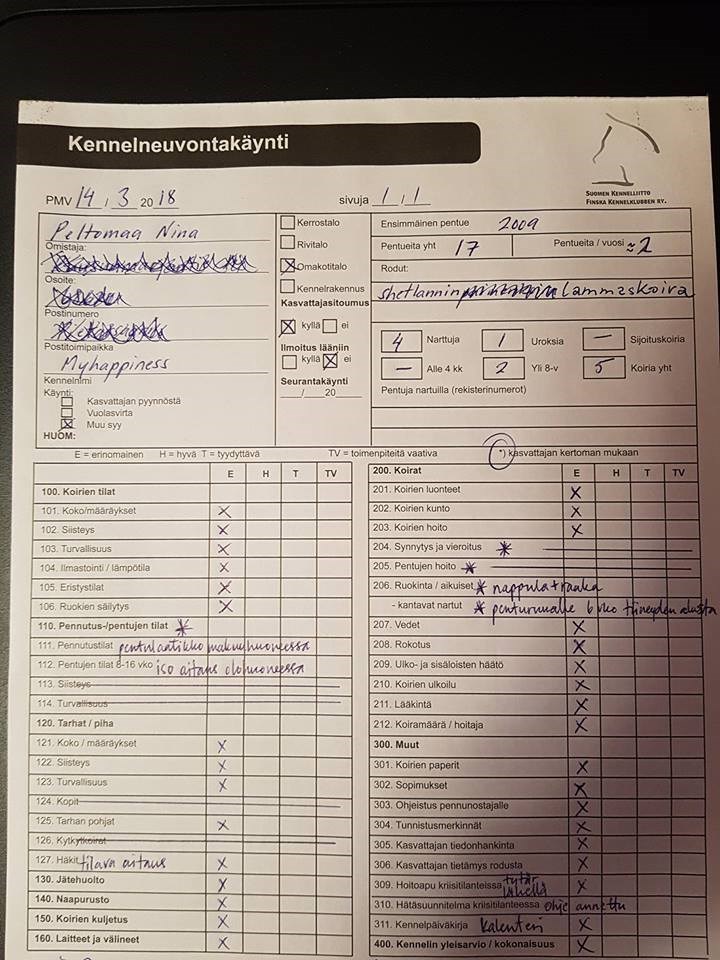 Kennelneuvontakäynti
SUOMEN KENNELLIITTO
FINSKA KENNELKLUBBEN RY.
PMV 14 / 3 20 18 sivuja 1 / 1
Peltomaa Nina
Omistaja:
Osoite:
Postinumero
Postitoimipaikka
Myhappiness
Kennelnimi
Käynti:
Kasvattajan pyynnöstä
Vuolasvirta
X Muu syy
HUOM:
Kerrostalo
Rivitalo
X Omakotitalo
Kennelrakennus
Kasvattajasitoumus
X kyllä ei
Ilmoitus lääniin
kyllä X ei
Seurantakäynti
/ 20
Ensimmäinen pentue 2009
Pentueita yht 17 Pentueita / vuosi ≈ 2
Rodut:
shetlannin lammaskoira
4 Narttuja 1 Uroksia — Sijoituskoiria
— Alle 4 kk 2 Yli 8-v 5 Koiria yht
Pentuja nartuilla (rekisterinumerot)
E = erinomainen H = hyvä T = tyydyttävä TV = toimenpiteitä vaativa *) kasvattajan kertoman mukaan
E H T TV
100. Koirien tilat
101. Koko/määräykset X
102. Siisteys X
103. Turvallisuus X
104. Ilmastointi / lämpötila X
105. Eristystilat X
106. Ruokien säilytys X
110. Pennutus-/pentujen tilat *
111. Pennutustilat pentulaatikko makuuhuoneessa
112. Pentujen tilat 8-16 vko iso aitaus olohuoneessa
113. Siisteys
114. Turvallisuus
120. Tarhat / piha
121. Koko / määräykset X
122. Siisteys X
123. Turvallisuus X
124. Kopit
125. Tarhan pohjat X
126. Kytkytkoirat
127. Häkit tilava aitaus X
130. Jätehuolto X
140. Naapurusto X
150. Koirien kuljetus X
160. Laitteet ja välineet X
200. Koirat E H T TV
201. Koirien luonteet X
202. Koirien kunto X
203. Koirien hoito X
204. Synnytys ja vieroitus *
205. Pentujen hoito *
206. Ruokinta / aikuiset * nappula + raaka
- kantavat nartut * penturuualle 6 vko tiineyden alusta
207. Vedet X
208. Rokotus X
209. Ulko- ja sisäloisten häätö X
210. Koirien ulkoilu X
211. Lääkintä X
212. Koiramäärä / hoitaja X
300. Muut
301. Koirien paperit X
302. Sopimukset X
303. Ohjeistus pennunostajalle X
304. Tunnistusmerkinnät X
305. Kasvattajan tiedonhankinta X
306. Kasvattajan tietämys rodusta X
309. Hoitoapu kriisitilanteissa tytär lähellä X
310. Hätäsuunnitelma kriisitilanteessa ohje annettu
311. Kennelpäiväkirja kalenteri X
400. Kennelin yleisarvio / kokonaisuus X